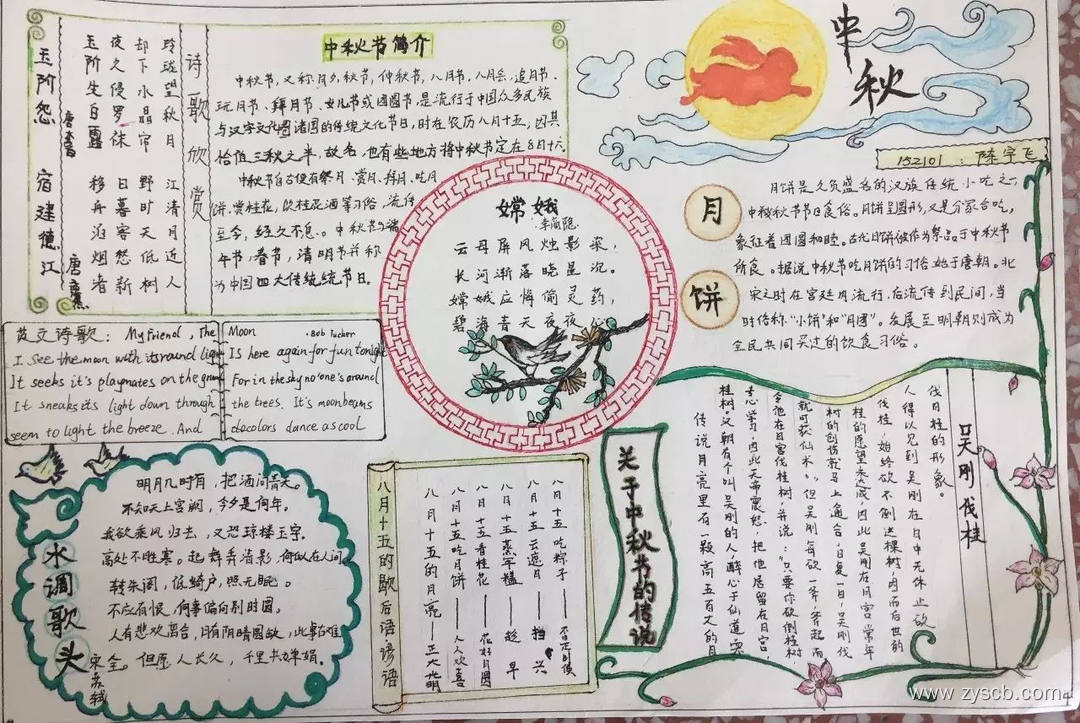 中秋
152101：陈宇飞
诗歌欣赏
玲珑望秋月
却下水晶帘
夜久侵罗袜
玉阶生白露
玉阶怨
唐李白
江清月近人
野旷天低树
日暮客愁新
移舟泊烟渚
宿建德江
唐
中秋节简介
中秋节，又称月夕，秋节，仲秋节，八月节，八月会，追月节，
玩月节、拜月节、女儿节或团圆节，是流行于中国众多民族
与汉字文化圈诸国的传统文化节日，时在农历八月十五；因其
恰值三秋之半，故名，也有些地方将中秋节定在8月十六
中秋节自古便有祭月、赏月、拜月、吃月
饼、赏桂花、饮桂花酒等习俗，流传
至今，经久不息。中秋节与端
午节，春节，清明节并称
为中国四大传统节日。
嫦娥
李商隐
云母屏风烛影深，
长河渐落晓星沉。
嫦娥应悔偷灵药，
碧海青天夜夜心
月饼
月饼是久负盛名的汉族传统小吃之一，
中秋节节日食俗。月饼呈圆形，又是合家合吃，
象征着团圆和睦。古代月饼被作为祭品于中秋节
所食。据说中秋节吃月饼的习俗始于唐朝。北
宋之时在宫廷内流行，后流传到民间，当
时俗称"小饼"和"月团"。发展至明朝则成为
全民共同买过的饮食习俗。
英文诗歌：My friend, The
I. See the moon with its round light
It seeks it's playmates on the ground
It sneaks its light down through
seem to light the breeze. And
Moon
Bob Tucker
Is here again for fun tonight
For in the sky no one's around
the trees. It's moonbeams
dacolors dance as cool
水调歌头
宋 苏轼
明月几时有，把酒问青天。
不知天上宫阙，今夕是何年。
我欲乘风归去，又恐琼楼玉宇，
高处不胜寒。起舞弄清影，何似在人间
转朱阁，低绮户，照无眠。
不应有恨，何事偏向别时圆。
人有悲欢离合，月有阴晴圆缺，此事古难
全。但愿人长久，千里共婵娟。
八月十五的歇后语谚语
八月十五吃粽子——不是时候
八月十五云遮月——挡兴
八月十五蒸年糕——趁早
八月十五看桂花——花好月圆
八月十五吃月饼——人人欢喜
八月十五的月亮——正大光明
关于中秋节的传说
吴刚伐桂
传说月亮里有一颗高五百丈的月
桂树。汉朝有个叫吴刚的人，醉心于仙道而不
专心学习，因此天帝震怒，把他居留在月宫，
令他在月宫伐桂树，并说："只要你砍倒桂树，
就可获仙术。"但吴刚每砍一斧，斧起而
树的创伤就马上愈合，日复一日，吴刚伐
桂的愿望未达成，因此吴刚在月宫常年
伐桂，始终砍不倒这棵树，而后世的
人得以见到吴刚在月中无休止砍
伐月桂的形象。
www.zyscb.com